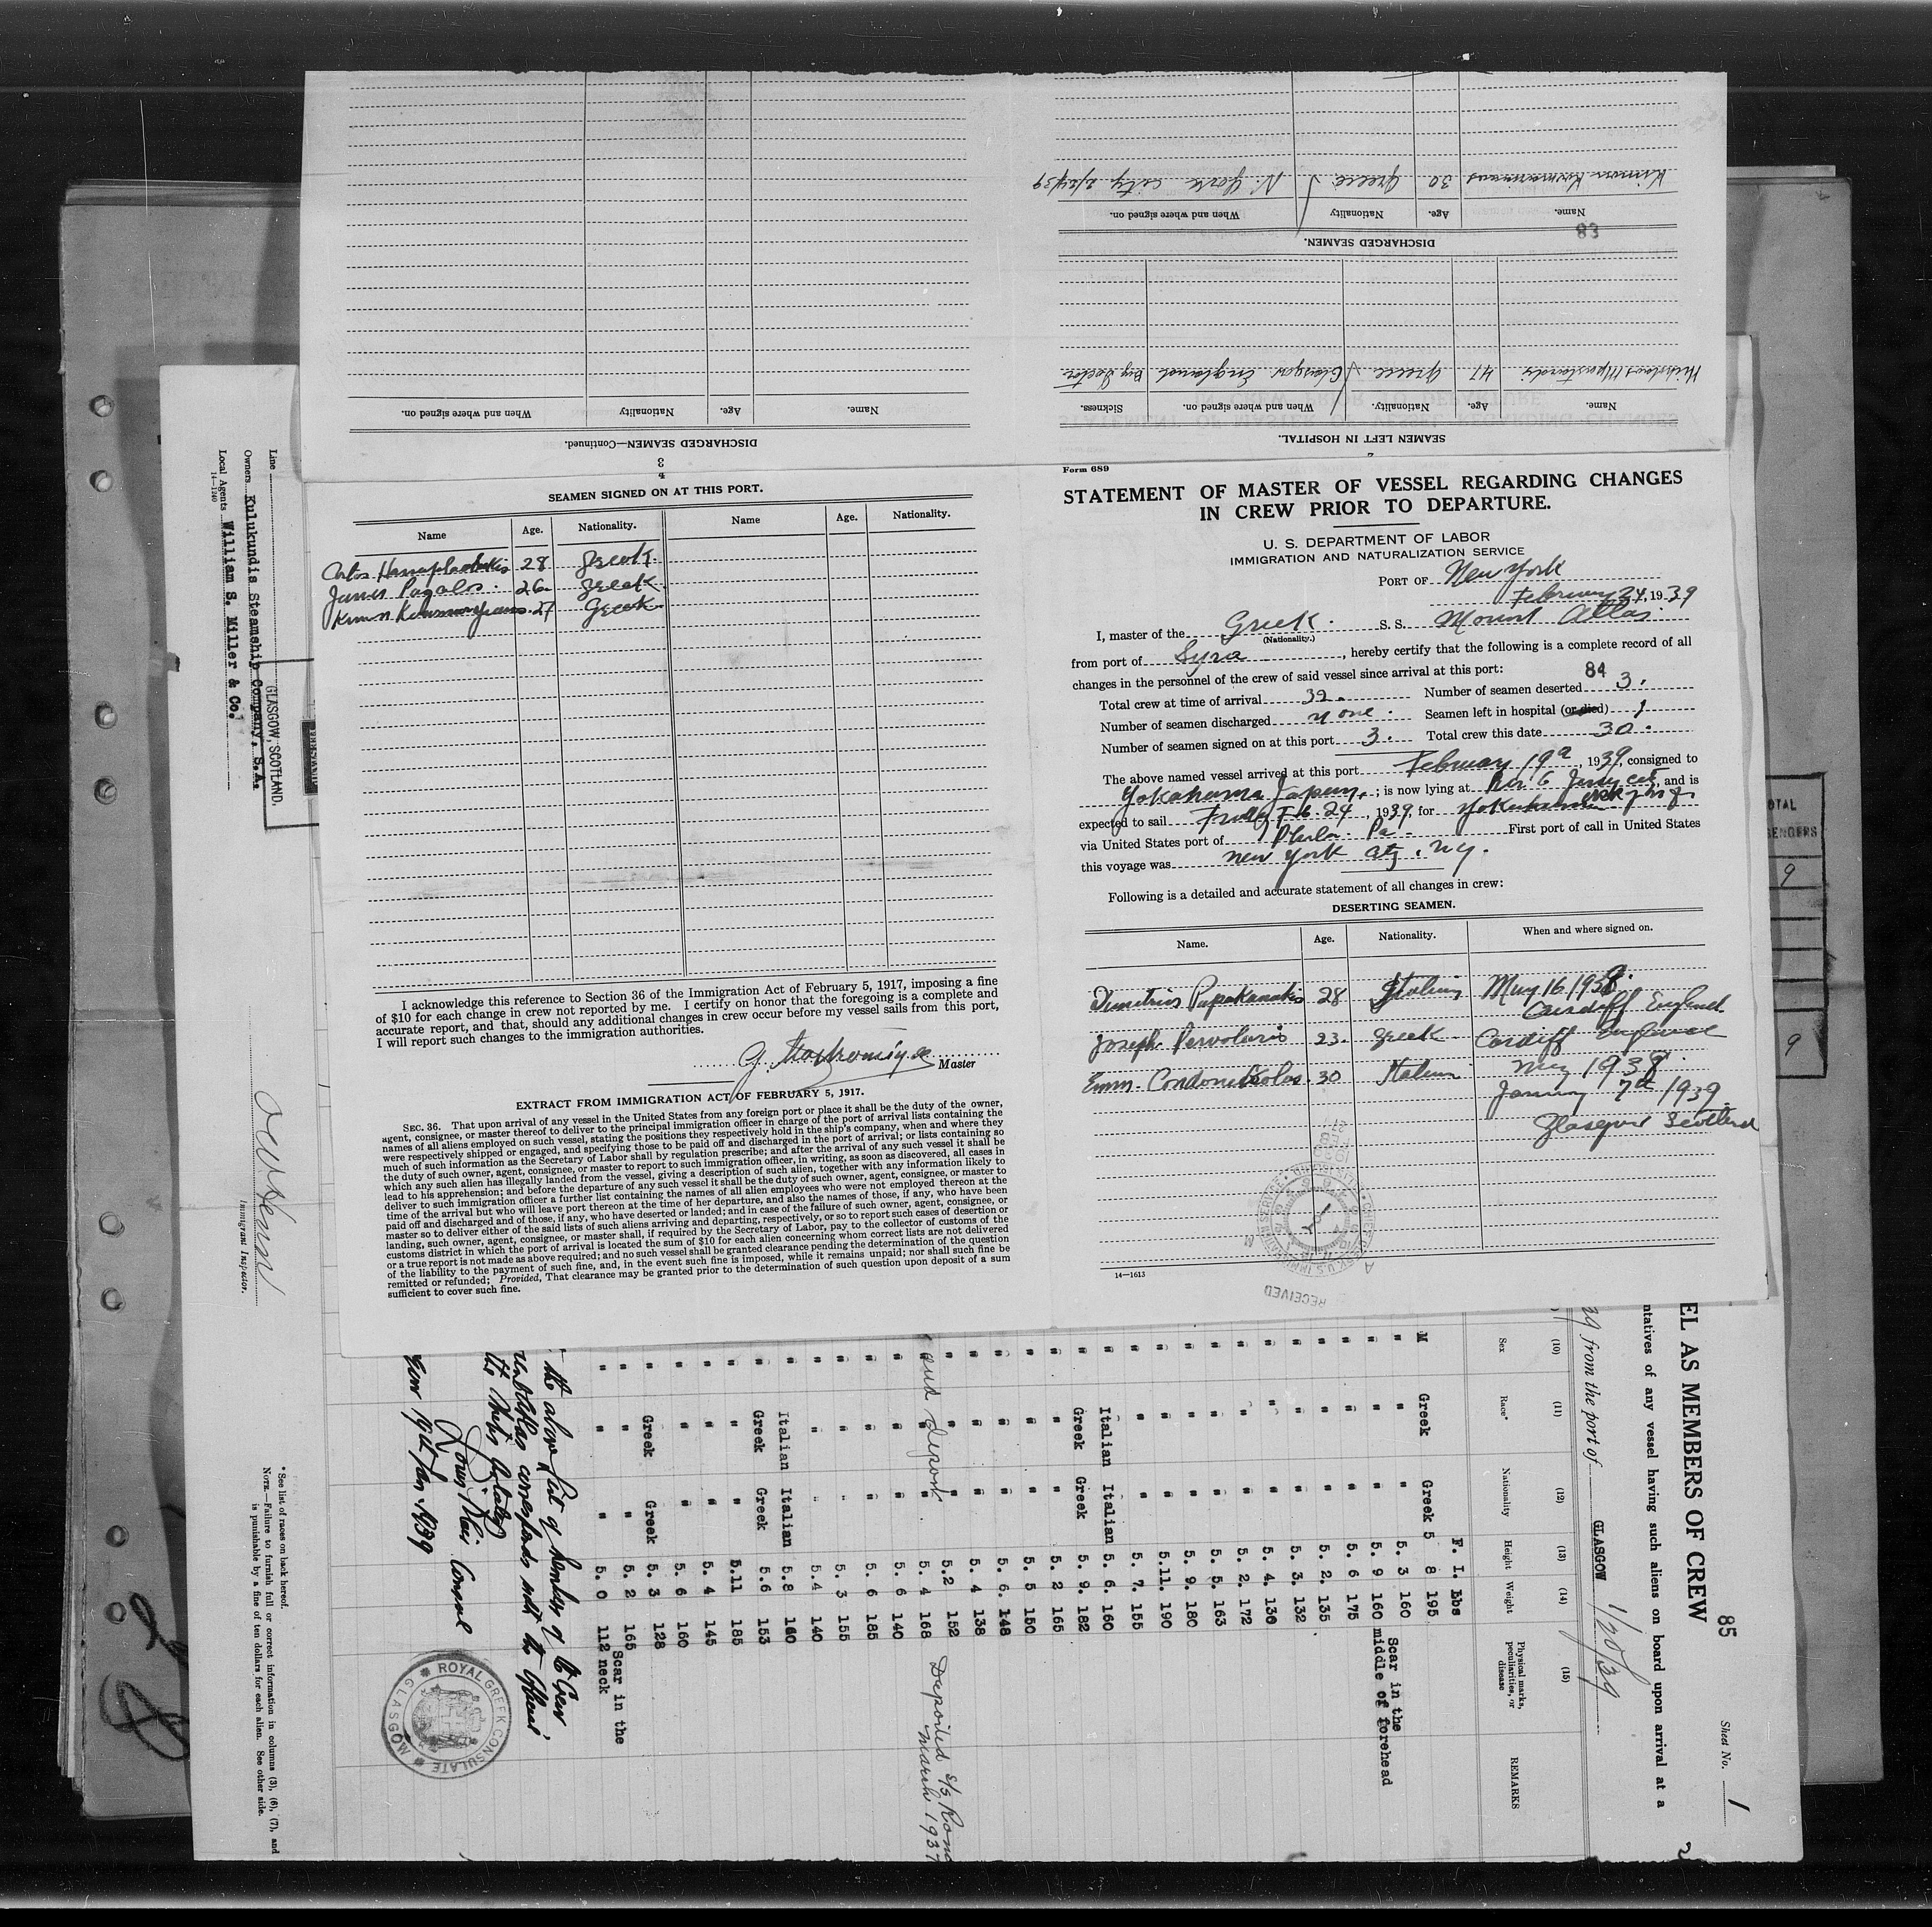 Form 689
STATEMENT OF MASTER OF VESSEL REGARDING CHANGES
IN CREW PRIOR TO DEPARTURE.
U. S. DEPARTMENT OF LABOR
IMMIGRATION AND NATURALIZATION SERVICE
PORT OF New York
February 24, 1939
I, master of the Greek S. S. Mount Atlas
(Nationality.)
from port of Syra, hereby certify that the following is a complete record of all
changes in the personnel of the crew of said vessel since arrival at this port:
84
Total crew at time of arrival 32. Number of seamen deserted 3.
Number of seamen discharged none. Seamen left in hospital (or died) 1
Number of seamen signed on at this port 3. Total crew this date 30.
The above named vessel arrived at this port February 19, 1939, consigned to
Yokahama Japan; is now lying at Jersey City, and is
expected to sail Feb. 24, 1939, for
via United States port of Phila. Pa. First port of call in United States
this voyage was New York City. N.Y.
Following is a detailed and accurate statement of all changes in crew:
DESERTING SEAMEN.
Name. Age. Nationality. When and where signed on.
Dimitrius Papakanakis 28 Italian May 16 1938.
Cardiff England.
Joseph Pervolaris 23. Greek Cardiff England
May 1938.
Emm. 30 Italian January 7th 1939.
Glasgow Scotland
14—1613
RECEIVED
4
SEAMEN SIGNED ON AT THIS PORT.
Name Age. Nationality. Name Age. Nationality.
28 Greek.
James Pagalos. 26 Greek
27 Greek
I acknowledge this reference to Section 36 of the Immigration Act of February 5, 1917, imposing a fine
of $10 for each change in crew not reported by me. I certify on honor that the foregoing is a complete and
accurate report, and that, should any additional changes in crew occur before my vessel sails from this port,
I will report such changes to the immigration authorities.
G. Master
EXTRACT FROM IMMIGRATION ACT OF FEBRUARY 5, 1917.
SEC. 36. That upon arrival of any vessel in the United States from any foreign port or place it shall be the duty of the owner,
agent, consignee, or master thereof to deliver to the principal immigration officer in charge of the port of arrival lists containing the
names of all aliens employed on such vessel, stating the positions they respectively hold in the ship's company, when and where they
were respectively shipped or engaged, and specifying those to be paid off and discharged in the port of arrival; or lists containing so
much of such information as the Secretary of Labor shall by regulation prescribe; and after the arrival of any such vessel it shall be
the duty of such owner, agent, consignee, or master to report to such immigration officer, in writing, as soon as discovered, all cases in
which any such alien has illegally landed from the vessel, giving a description of such alien, together with any information likely to
lead to his apprehension; and before the departure of any such vessel it shall be the duty of such owner, agent, consignee, or master to
deliver to such immigration officer a further list containing the names of all alien employees who were not employed thereon at the
time of the arrival but who will leave port thereon at the time of her departure, and also the names of those, if any, who have been
paid off and discharged and of those, if any, who have deserted or landed; and in case of the failure of such owner, agent, consignee, or
master so to deliver either of the said lists of such aliens arriving and departing, respectively, or so to report such cases of desertion or
landing, such owner, agent, consignee, or master shall, if required by the Secretary of Labor, pay to the collector of customs of the
customs district in which the port of arrival is located the sum of $10 for each alien concerning whom correct lists are not delivered
or a true report is not made as above required; and no such vessel shall be granted clearance pending the determination of the question
of the liability to the payment of such fine, and, in the event such fine is imposed, while it remains unpaid; nor shall such fine be
remitted or refunded; Provided, That clearance may be granted prior to the determination of such question upon deposit of a sum
sufficient to cover such fine.
2
SEAMEN LEFT IN HOSPITAL.
Name. Age. Nationality. When and where signed on. Sickness.
47 Greece Glasgow England By Doctor
DISCHARGED SEAMEN.
83
Name. Age. Nationality When and where signed on.
30 Greece N. York City 2/24/39
3
DISCHARGED SEAMEN—Continued.
Name. Age. Nationality When and where signed on.
Line
Owners Kulukundis Steamship Company, S.A.
Local Agents William S. Miller & Co.
14—1240
GLASGOW, SCOTLAND.
Immigrant Inspector.
* See list of races on back hereof.
NOTE.—Failure to furnish full or correct information in columns (3), (6), (7), and
is punishable by a fine of ten dollars for each alien. See other side.
EL AS MEMBERS OF CREW
85
Sheet No. 1
ntatives of any vessel having such aliens on board upon arrival at a
from the port of GLASGOW 1/20/39
(10) (11) (12) (13) (14) (15)
Sex Race* Nationality Height Weight Physical marks, peculiarities, or disease REMARKS
F. I. Lbs
M Greek Greek 5 8 195
" " " 5. 3 160 Scar in the
" " " 5. 9 160 middle of forehead
" " " 5. 6 175
" " " 5. 2. 135
" " " 5. 3. 132
" " " 5. 4. 130
" " " 5. 2. 172
" " " 5. 5. 163
" " " 5. 9. 180
" " " 5.11. 190
" " " 5. 7. 155
" Italian Italian 5. 6. 160
" Greek Greek 5. 9. 182
" " " 5. 2 165
" " " 5. 5 150
" " " 5. 6. 148
" " " 5. 4 138
" " " 5.2 152
" " " 5. 4 168 Deported S/S
March 1937
and deport
" " " 5. 6 140
" " " 5. 6 185
" " " 5. 3 155
" " " 5.4 140
" Italian Italian 5.8 160
" Greek Greek 5.6 153
" " " 5.11 185
" " " 5. 4 145
" " " 5. 6 160
" Greek Greek 5. 3 128
" " " 5. 2 165 Scar in the
" " " 5. 0 112 neck
the above list of members of the crew
corresponds with the official
Consul
19th Jan. 1939
ROYAL GREEK CONSULATE
GLASGOW
OTAL
SENGERS
9
9